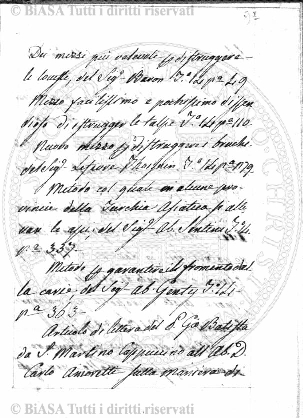 © BIASA Tutti i diritti riservati
Dei mezzi più valevoli p distruggere
le Loupe, del Sig. Baron T.o 14 p.a 49
Mezzo facilissimo e pochissimo dispen
dioso di distrugger le talpe T.o 14 p.a 110.
Nuovo mezzo p distruggere i bruchi
del Sig.
Metodo col quale in alcune pro
vincie della Turchia Asiatica si alle
van le api del Sig. Ab. Sestini T.
p.a 337
Metodo p garantire il fromento dal
la carie del Sig. Ab. Genty T.
p.a 363
Articolo di lettera del P. Gio Batista
da S. Martino Cappuccino all'Ab. D.
Carlo Amoretti sulla maniera di
© BIASA Tutti i diritti riservati